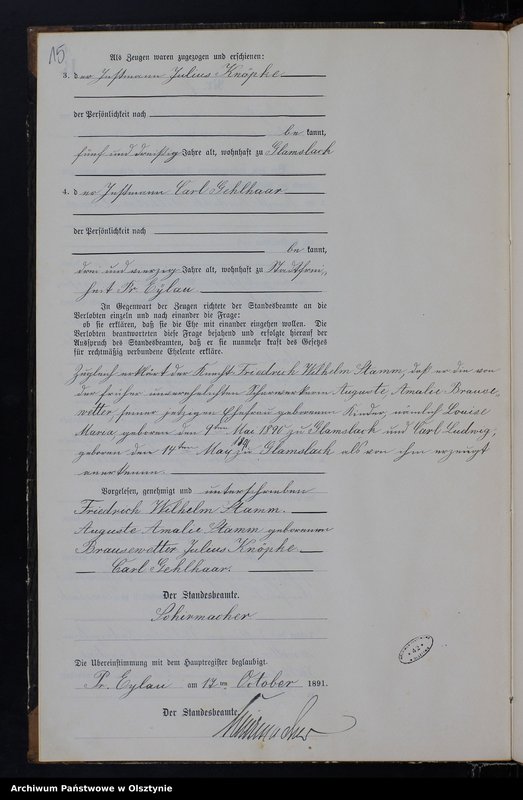 15
Als Zeugen waren zugezogen und erschienen:
3. der Instmann Julius Knöpke
der Persönlichkeit nach
be kannt,
fünf und dreißig Jahre alt, wohnhaft zu Glamslack
4. der Instmann Carl Gehlhaar
der Persönlichkeit nach
be kannt,
drei und vierzig Jahre alt, wohnhaft zu Stadtfrei-
heit Pr. Eylau
In Gegenwart der Zeugen richtete der Standesbeamte an die
Verlobten einzeln und nach einander die Frage:
ob sie erklären, daß sie die Ehe mit einander eingehen wollen. Die
Verlobten beantworteten diese Frage bejahend und erfolgte hierauf der
Ausspruch des Standesbeamten, daß er sie nunmehr kraft des Gesetzes
für rechtmäßig verbundene Eheleute erkläre.
Zugleich erklärt der Knecht Friedrich Wilhelm Stamm, daß er die von
der früher unverehelichten Auguste Amalie Brause-
wetter, seiner jetzigen Ehefrau geborenen Kinder, nämlich Louise
Maria, geboren den 9ten Mai zu Glamslack und Carl Ludwig,
geboren den 14ten May zu Glamslack als von ihm erzeugt
anerkenne.
Vorgelesen, genehmigt und unterschrieben
Friedrich Wilhelm Stamm.
Auguste Amalie Stamm geborene
Brausewetter Julius Knöpke
Carl Gehlhaar.
Der Standesbeamte.
Schirmacher
Die Übereinstimmung mit dem Hauptregister beglaubigt.
Pr. Eylau am 17ten October 1891.
Der Standesbeamte.
Schirmacher
Archiwum Państwowe w Olsztynie